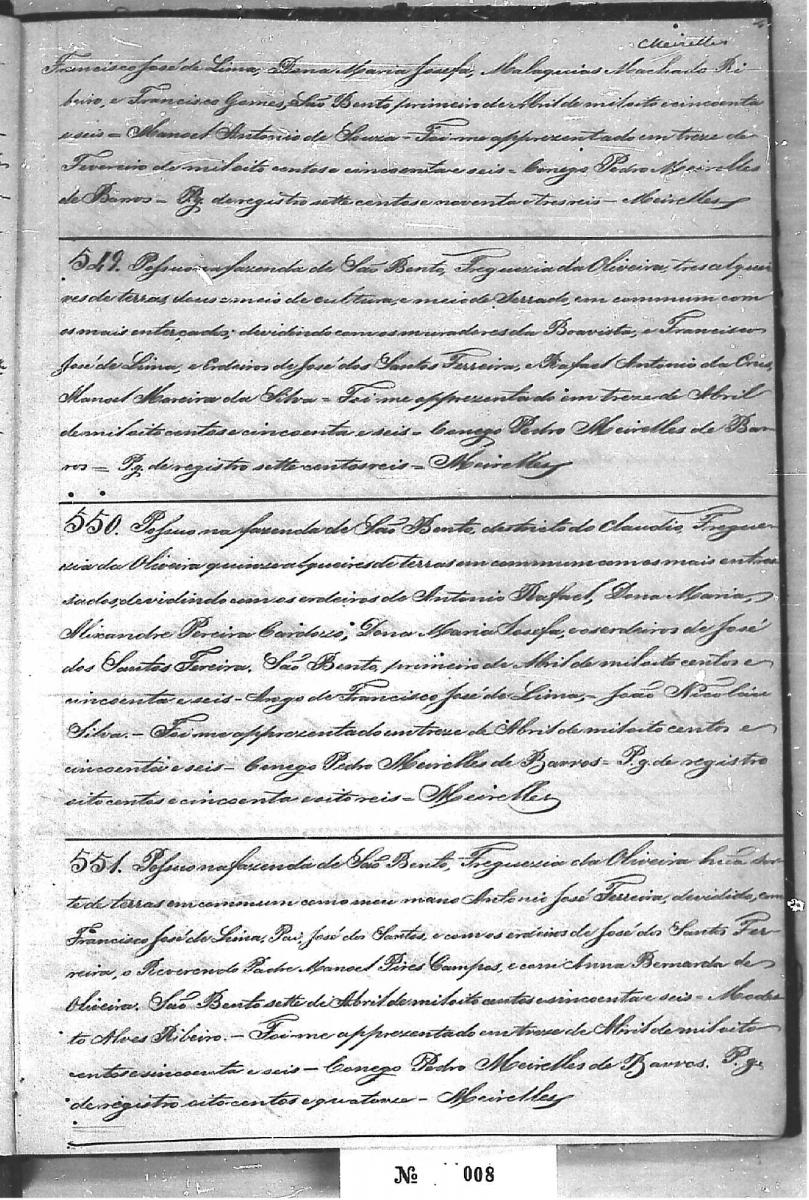 Meirelles
Francisco José de Lima, Dona Maria Josefa, Malaquias Machado Ri-
beiro, e Francisco Gomes, São Bento, primeiro de Abril de mil oito e cincoenta
e seis = Manoel Antonio de Souza = Foi-me apprezentado em treze de
Fevereiro de mil oito centos e cincoenta e seis = Conego Pedro Meirelles
de Barros = Pg. de registro sette centos e noventa e tres reis = Meirelles
549. Possuo na fazenda de São Bento, Freguezia da Oliveira, tres alquei-
res de terras dous e meio de cultura, e meio de Serrado, em commum com
os mais enterçados; devidindo com os muradores da Boavista, e Francisco
José de Lima, e Erdeiros de José dos Santos Ferreira, e Rafael Antonio da Crus,
Manoel Moreira da Silva = Foi-me apprezentado em treze de Abril
de mil oito centos e cincoenta e seis = Conego Pedro Meirelles de Bar-
ros = Pg. de registro sette centos reis = Meirelles
550. Possuo na fazenda de São Bento, destricto do Claudio, Fregue-
zia da Oliveira quinze alqueires de terras em commum com os mais entres-
sados, devidindo com os erdeiros de Antonio Rafael, Dona Maria,
Alixandre Pereira Cardozo, Dona Maria Josefa, e os erdeiros de José
dos Santos Fereira. São Bento, primeiro de Abril de mil oito centos e
cincoenta e seis - Arogo de Francisco José de Lima, - João Nicoláu
Silva. - Foi-me apprezentado em treze de Abril de mil oito centos e
cincoenta e seis - Conego Pedro Meirelles de Barros - P.g. de registro
oito centos e cincoenta e oito reis = Meirelles
551. Possuo na fazenda de São Bento, Freguezia da Oliveira huã sor-
te de terras em commum como meu mano Antonio José Ferreira, devidido, com
Francisco José de Lima, Pai, José dos Santos, e com os erdeiros de José dos Santos Fer-
reira, o Reverendo Padre Manoel Pires Campos, e com Anna Bernarda de
Oliveira. São Bento sette de Abril de mil oito centos e sincoenta e seis = Modes-
to Alves Ribeiro. - Foi-me apprezentado em treze de Abril de mil oito
centos e sincoenta e seis - Conego Pedro Meirelles de Barros. P.g.
de registro oito centos e quatorze - Meirelles
Nº 008